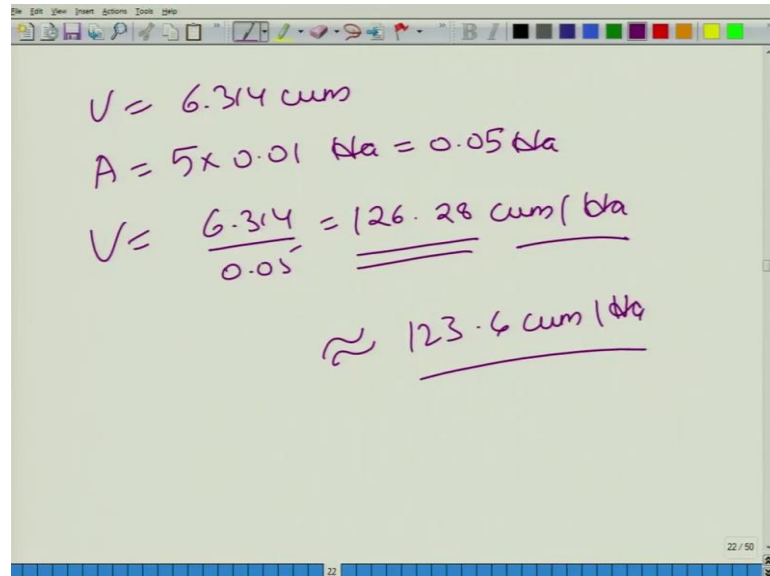 File Edit View Insert Actions Tools Help
V = 6.314 cum
A = 5 x 0.01 Ha = 0.05 Ha
V = 6.314 / 0.05 = 126.28 cum / Ha
≈ 123.6 cum / Ha
22 / 50
22